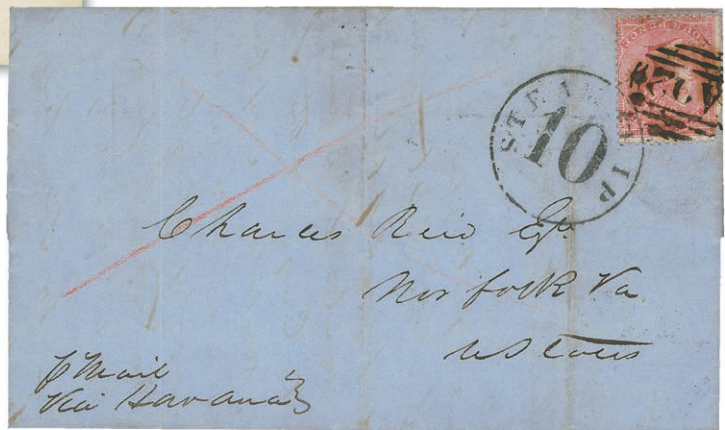 FOUR PENCE
STEAMSHIP
10
Charles Reid Esqr.
Norfolk Va
U States
P Mail
Via Havana